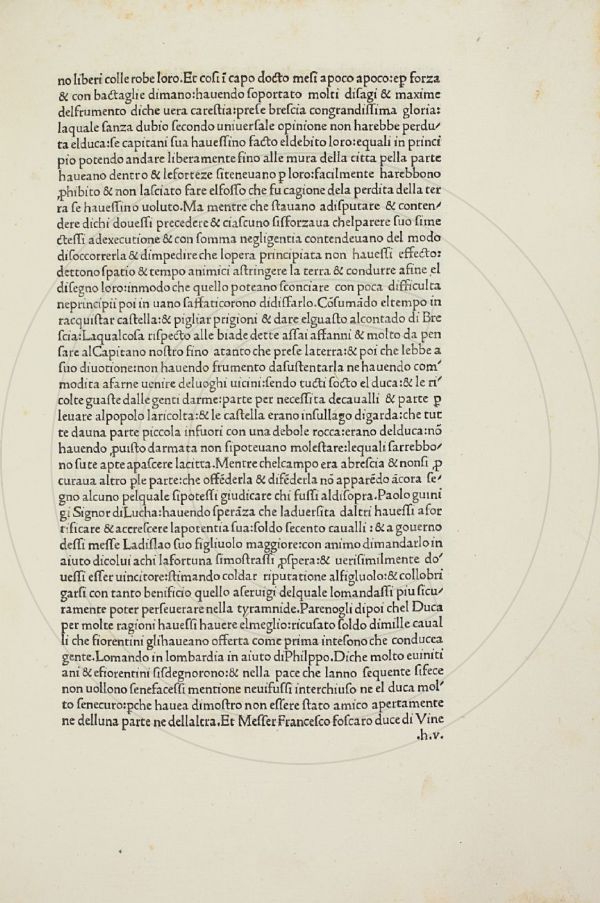 no liberi colle robe loro.Et cosi ĩ capo docto mesi apoco apoco:eꝑ forza
& con bactaglie dimano:hauendo soportato molti disagi & maxime
delfrumento diche uera carestia:prese brescia congrandissima gloria:
laquale sanza dubio secondo uniuersale opinione non harebbe perdu⸗
ta elduca:se capitani sua hauessino facto eldebito loro:equali in princi
pio potendo andare liberamente fino alle mura della citta pella parte
haueano dentro & leforteze siteneuano ꝑ loro:facilmente harebbono
ꝓhibito & non lasciato fare elfosso che fu cagione dela perdita della ter
ra se hauessino uoluto.Ma mentre che stauano adisputare & conten⸗
dere dichi douessi precedere & ciascuno sisforzaua chelparere suo sime
ctessi adexecutione & con somma negligentia contendeuano del modo
disoccorrerla & dimpedire che lopera principiata non hauessi effecto:
dettono spatio & tempo animici astringere la terra & condurre afine el
disegno loro:inmodo che quello poteano sconciare con poca difficulta
neprincipii poi in uano saffaticorono didisfarlo.Cõsumãdo eltempo in
racquistar castella:& pigliar prigioni & dare elguasto alcontado di Bre
scia:Laqualcosa rispecto alle biade dette assai affanni & molto da pen
sare alCapitano nostro fino atanto che prese laterra:& poi che lebbe a
suo diuotione:non hauendo frumento dasustentarla ne hauendo com⸗
modita afarne uenire deluoghi uicini:sendo tucti socto el duca:& le ri⸗
colte guaste dalle genti darme:parte per necessita decaualli & parte ꝑ
leuare alpopolo laricolta:& le castella erano insullago digarda:che tut
te dauna parte piccola infuori con una debole rocca:erano delduca:nõ
hauendo ꝓuisto darmata non sipoteuano molestare:lequali sarrebbo⸗
no sute apte apascere lacitta.Mentre chelcampo era abrescia &nonsi ꝓ
curaua altro ꝑle parte:che offẽderla & difẽderla nõ apparẽdo ãcora se⸗
gno alcuno pelquale sipotessi giudicare chi fussi aldisopra.Paolo guini
gi Signor diLucha:hauendo sperãza che laduersita daltri hauessi afor
tificare & accrescere lapotentia sua:soldo secento caualli : & a gouerno
dessi messe Ladislao suo figliuolo maggiore:con animo dimandarlo in
aiuto dicolui achi lafortuna simostrassi ꝓspera:& uerisimilmente do⸗
uessi esser uincitore:stimando coldar riputatione alfigluolo:& collobri
garsi con tanto benificio quello aseruigi delquale lomandassi piu sicu⸗
ramente poter perseuerare nella tyramnide.Parenogli dipoi chel Duca
per molte ragioni hauessi hauere elmeglio:ricusato soldo dimille caual
li che fiorentini glihaueano offerta come prima intesono che conducea
gente.Lomando in lombardia in aiuto diPhilppo.Diche molto euiniti
ani & efiorentini sisdegnorono:& nella pace che lanno sequente sifece
non uollono senefacessi mentione neuifussi interchiuso ne el duca mol⸗
to senecuro:ꝑche hauea dimostro non essere stato amico apertamente
ne delluna parte ne dellaltra.Et Messer Francesco foscaro duce di Vine
.h.v.